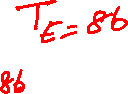 T_E = 86
86